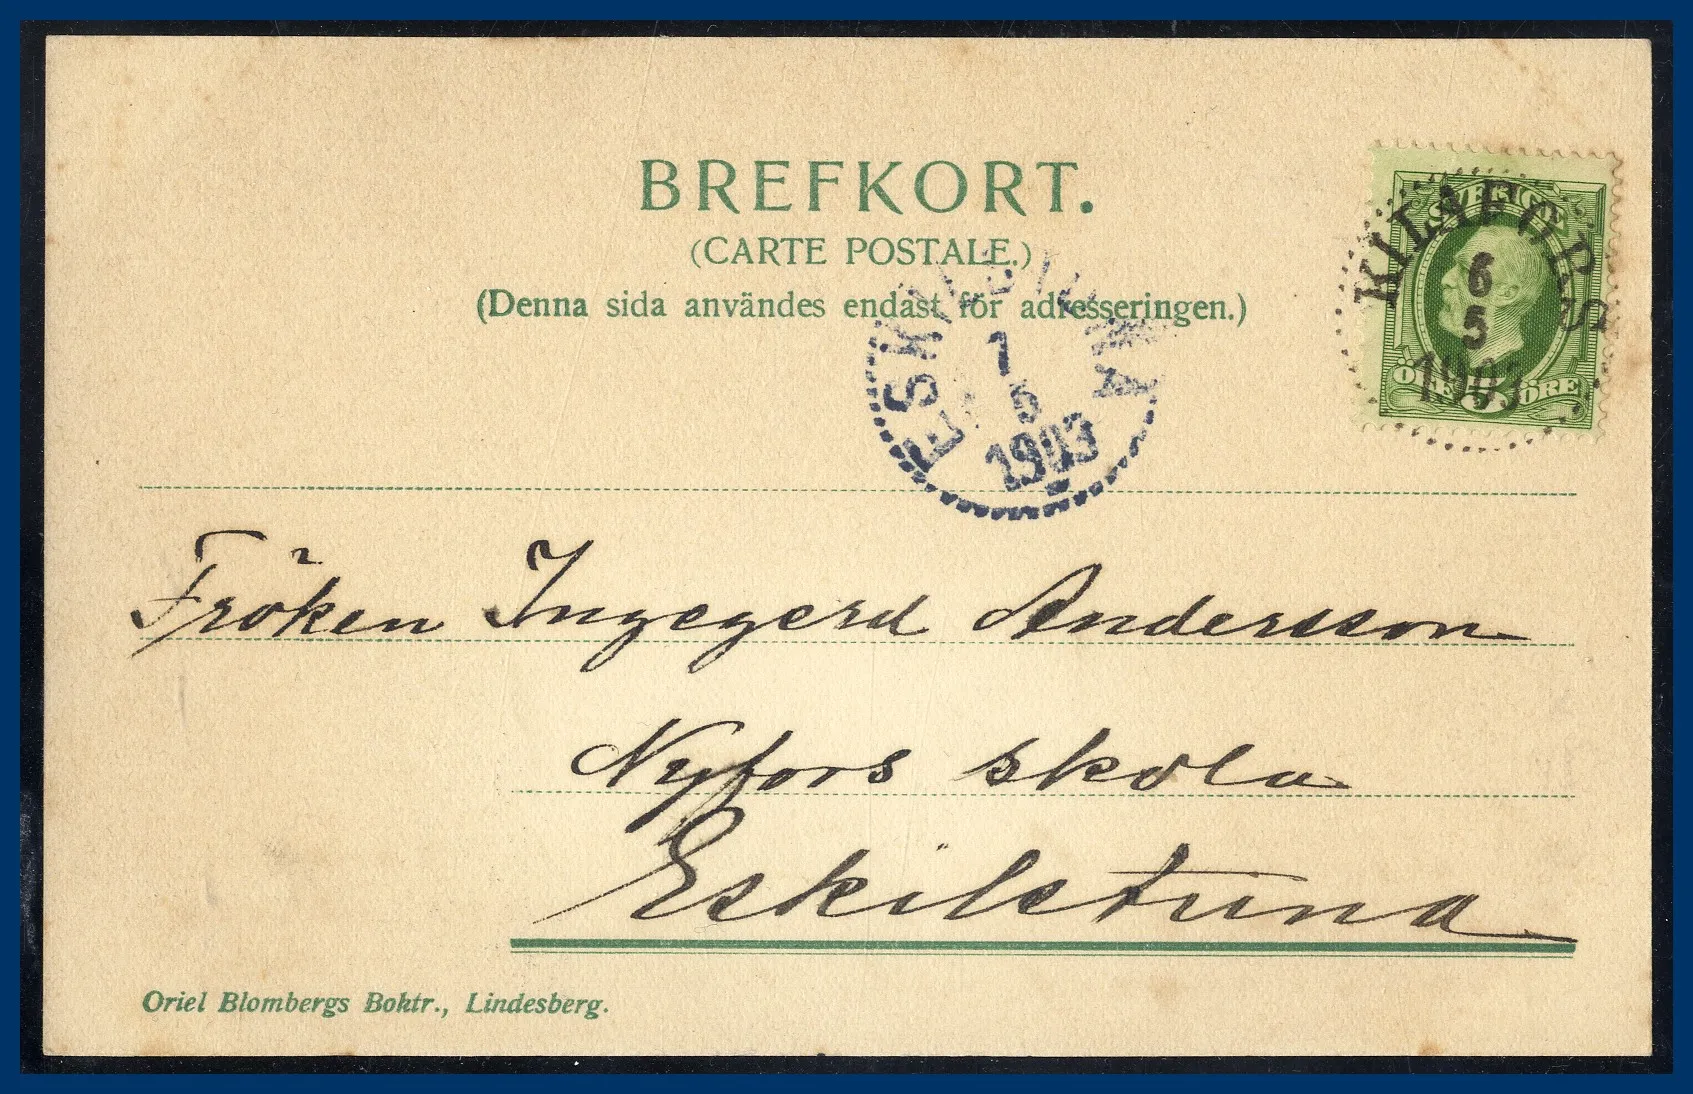 BREFKORT.
(CARTE POSTALE.)
(Denna sida användes endast för adresseringen.)
SVERIGE
ÖRE 5 ÖRE
KILAFORS
6
5
1903
ESKILSTUNA
7
5
1903
Fröken Ingegerd Andersson
Nyfors skola
Eskilstuna
Oriel Blombergs Boktr., Lindesberg.